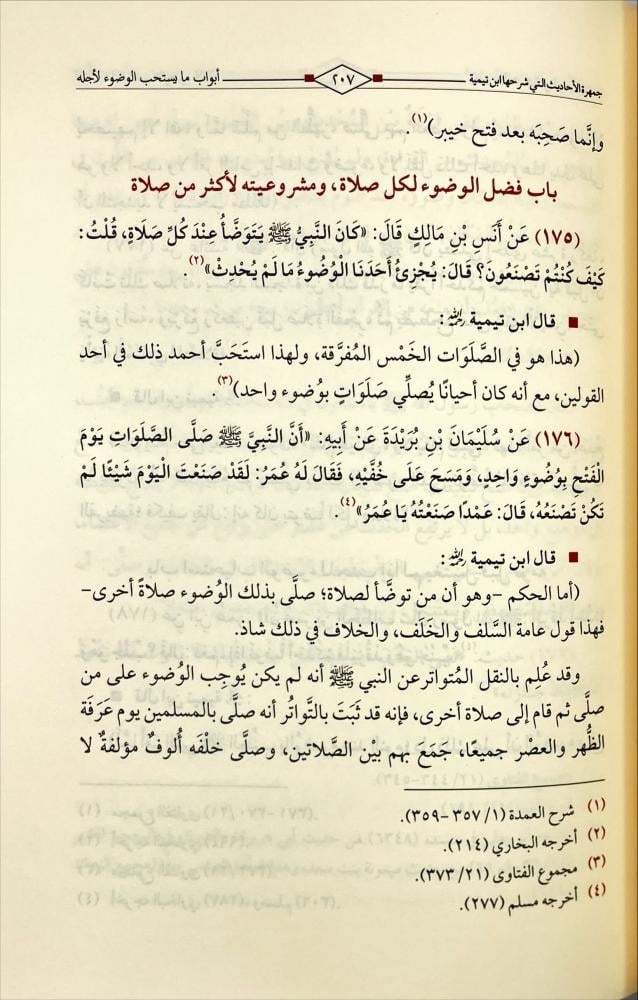 جمهرة الأحاديث التي شرحها ابن تيمية ٢٠٧ أبواب ما يستحب الوضوء لأجله
وإنَّما صَحِبَه بعد فتح خيبر)(١).
باب فضل الوضوء لكل صلاة، ومشروعيته لأكثر من صلاة
(١٧٥) عَنْ أَنَسِ بْنِ مَالِكٍ قَالَ: «كَانَ النَّبِيُّ ﷺ يَتَوَضَّأُ عِنْدَ كُلِّ صَلَاةٍ، قُلْتُ:
كَيْفَ كُنْتُمْ تَصْنَعُونَ؟ قَالَ: يُجْزِئُ أَحَدَنَا الْوُضُوءُ مَا لَمْ يُحْدِثْ»(٢).
■ قال ابن تيمية رحمه الله:
(هذا هو في الصَّلَوَات الخَمْس المُفرَّقة، ولهذا استَحَبَّ أحمد ذلك في أحد
القولين، مع أنه كان أحيانًا يُصلِّي صَلَوَاتٍ بوُضوء واحد)(٣).
(١٧٦) عَنْ سُلَيْمَانَ بْنِ بُرَيْدَةَ عَنْ أَبِيهِ: «أَنَّ النَّبِيَّ ﷺ صَلَّى الصَّلَوَاتِ يَوْمَ
الْفَتْحِ بِوُضُوءٍ وَاحِدٍ، وَمَسَحَ عَلَى خُفَّيْهِ، فَقَالَ لَهُ عُمَرُ: لَقَدْ صَنَعْتَ الْيَوْمَ شَيْئًا لَمْ
تَكُنْ تَصْنَعُهُ، قَالَ: عَمْدًا صَنَعْتُهُ يَا عُمَرُ»(٤).
■ قال ابن تيمية رحمه الله:
(أما الحكم -وهو أن من توضَّأ لصلاة؛ صلَّى بذلك الوُضوء صلاةً أخرى-
فهذا قول عامة السَّلف والخَلَف، والخلاف في ذلك شاذ.
وقد عُلِم بالنقل المُتواتر عن النبي ﷺ أنه لم يكن يُوجِب الوُضوء على من
صلَّى ثم قام إلى صلاة أخرى، فإنه قد ثَبَتَ بالتَّواتُر أنه صلَّى بالمسلمين يوم عَرَفَة
الظُّهر والعصْر جميعًا، جَمَعَ بهم بيْن الصَّلاتين، وصلَّى خلْفَه أُلوفٌ مؤلفةٌ لا
(١) شرح العمدة (١/ ٣٥٧ -٣٥٩).
(٢) أخرجه البخاري (٢١٤).
(٣) مجموع الفتاوى (٢١/ ٣٧٣).
(٤) أخرجه مسلم (٢٧٧).